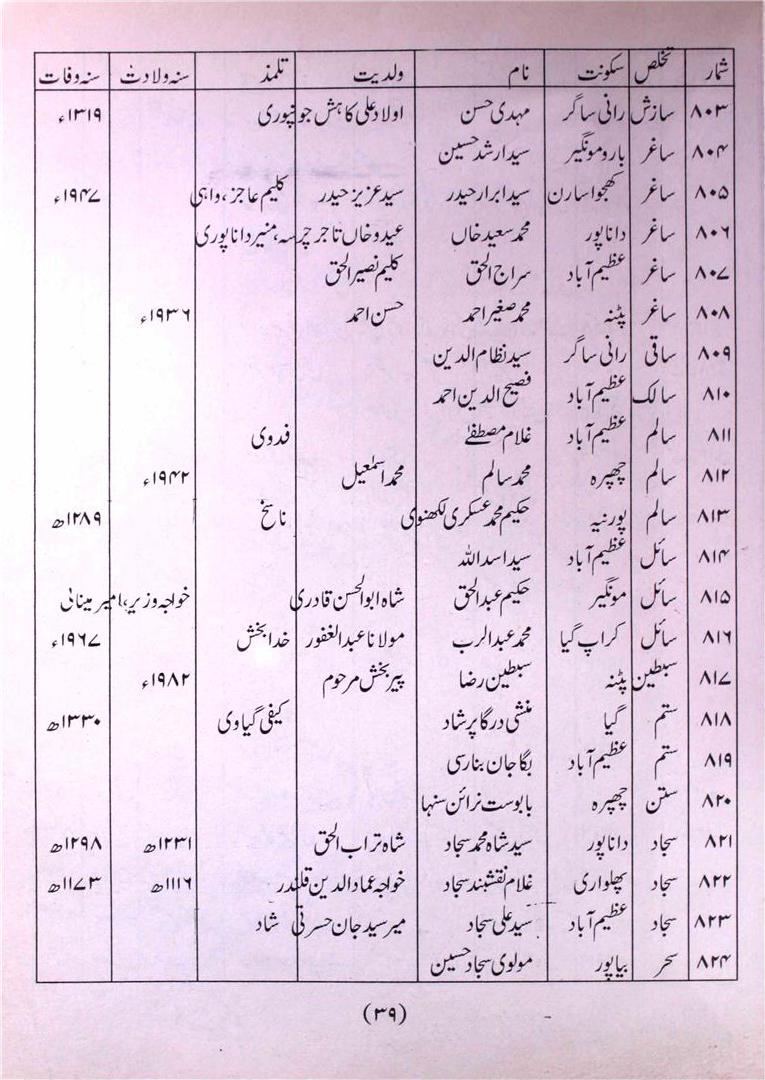 شمار تخلص سکونت نام ولدیت تلمذ سنہ ولادت سنہ وفات
۸۰۳ سازش رانی ساگر مہدی حسن اولاد علی کاہش جونپوری ۱۳۱۹ء
۸۰۴ ساغر بارو مونگیر سید ارشد حسین
۸۰۵ ساغر کھجوا سارن سید ابرار حیدر سید عزیز حیدر کلیم عاجز، واہی ۱۹۴۷ء
۸۰۶ ساغر داناپور محمد سعید خاں عیدو خاں تاجر چرسہ، منیر داناپوری
۸۰۷ ساغر عظیم آباد سراج الحق کلیم نصیر الحق
۸۰۸ ساغر پٹنہ محمد صغیر احمد حسن احمد ۱۹۳۶ء
۸۰۹ ساقی رانی ساگر سید نظام الدین
۸۱۰ سالک عظیم آباد فصیح الدین احمد
۸۱۱ سالم عظیم آباد غلام مصطفےٰ فدوی
۸۱۲ سالم چھپرہ محمد سالم محمد اسمٰعیل ۱۹۴۲ء
۸۱۳ سالم پورنیہ حکیم محمد عسکری لکھنوی ناسخ ۱۲۸۹ھ
۸۱۴ سائل عظیم آباد سید اسد اللہ
۸۱۵ سائل مونگیر حکیم عبدالحق شاہ ابوالحسن قادری خواجہ وزیر، امیر مینائی
۸۱۶ سائل کراپ گیا محمد عبدالرب مولانا عبدالغفور خدا بخش ۱۹۶۷ء
۸۱۷ سبطین پٹنہ سبطین رضا پیر بخش مرحوم ۱۹۸۲ء
۸۱۸ ستم گیا منشی درگا پرشاد کیفی گیاوی ۱۳۳۰ھ
۸۱۹ ستم عظیم آباد بگا جان بنارسی
۸۲۰ ستن چھپرہ بابو ست نرائن سنہا
۸۲۱ سجاد داناپور سید شاہ محمد سجاد شاہ تراب الحق ۱۲۳۱ھ ۱۲۹۸ھ
۸۲۲ سجاد پھلواری غلام نقشبند سجاد خواجہ عماد الدین قلندر ۱۱۱۶ھ ۱۱۷۳ھ
۸۲۳ سجاد عظیم آباد سید علی سجاد میر سید جان حسرتی شاد
۸۲۴ سحر بیاپور مولوی سجاد حسین
(۳۹)